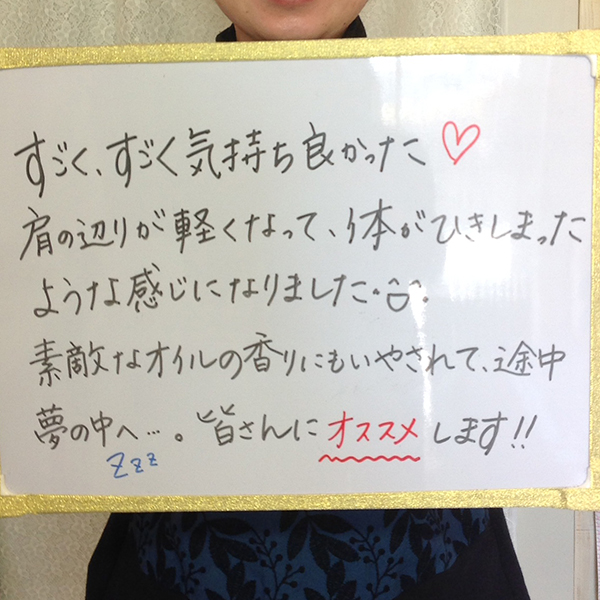 すごく、すごく気持ち良かった♡
肩の辺りが軽くなって、体がひきしまった
ような感じになりました
素敵なオイルの香りにもいやされて、途中
夢の中へ…。皆さんにオススメします!!
zzz